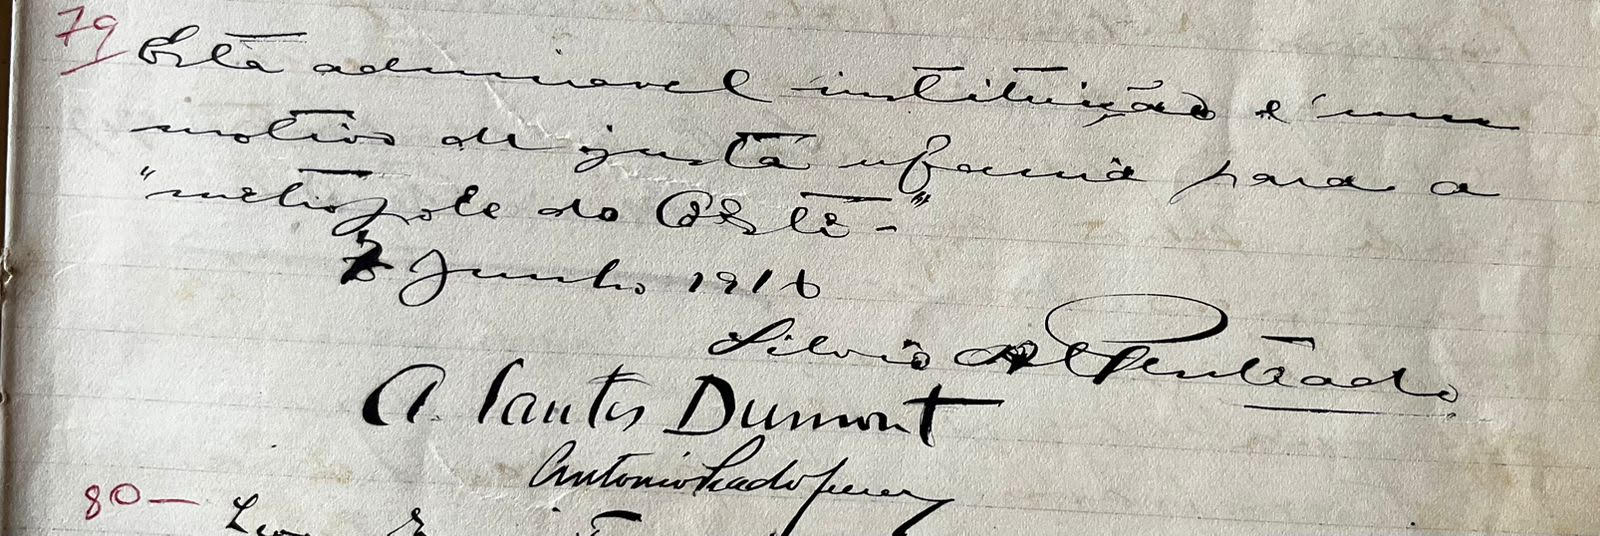 79
Esta admiravel instituição é um
motivo de justa ufania para a
"metropole do Oeste-"
7 Junho 1916
Silvio A Penteado
A. Santos Dumont
Antonio Prado Junior
80 —